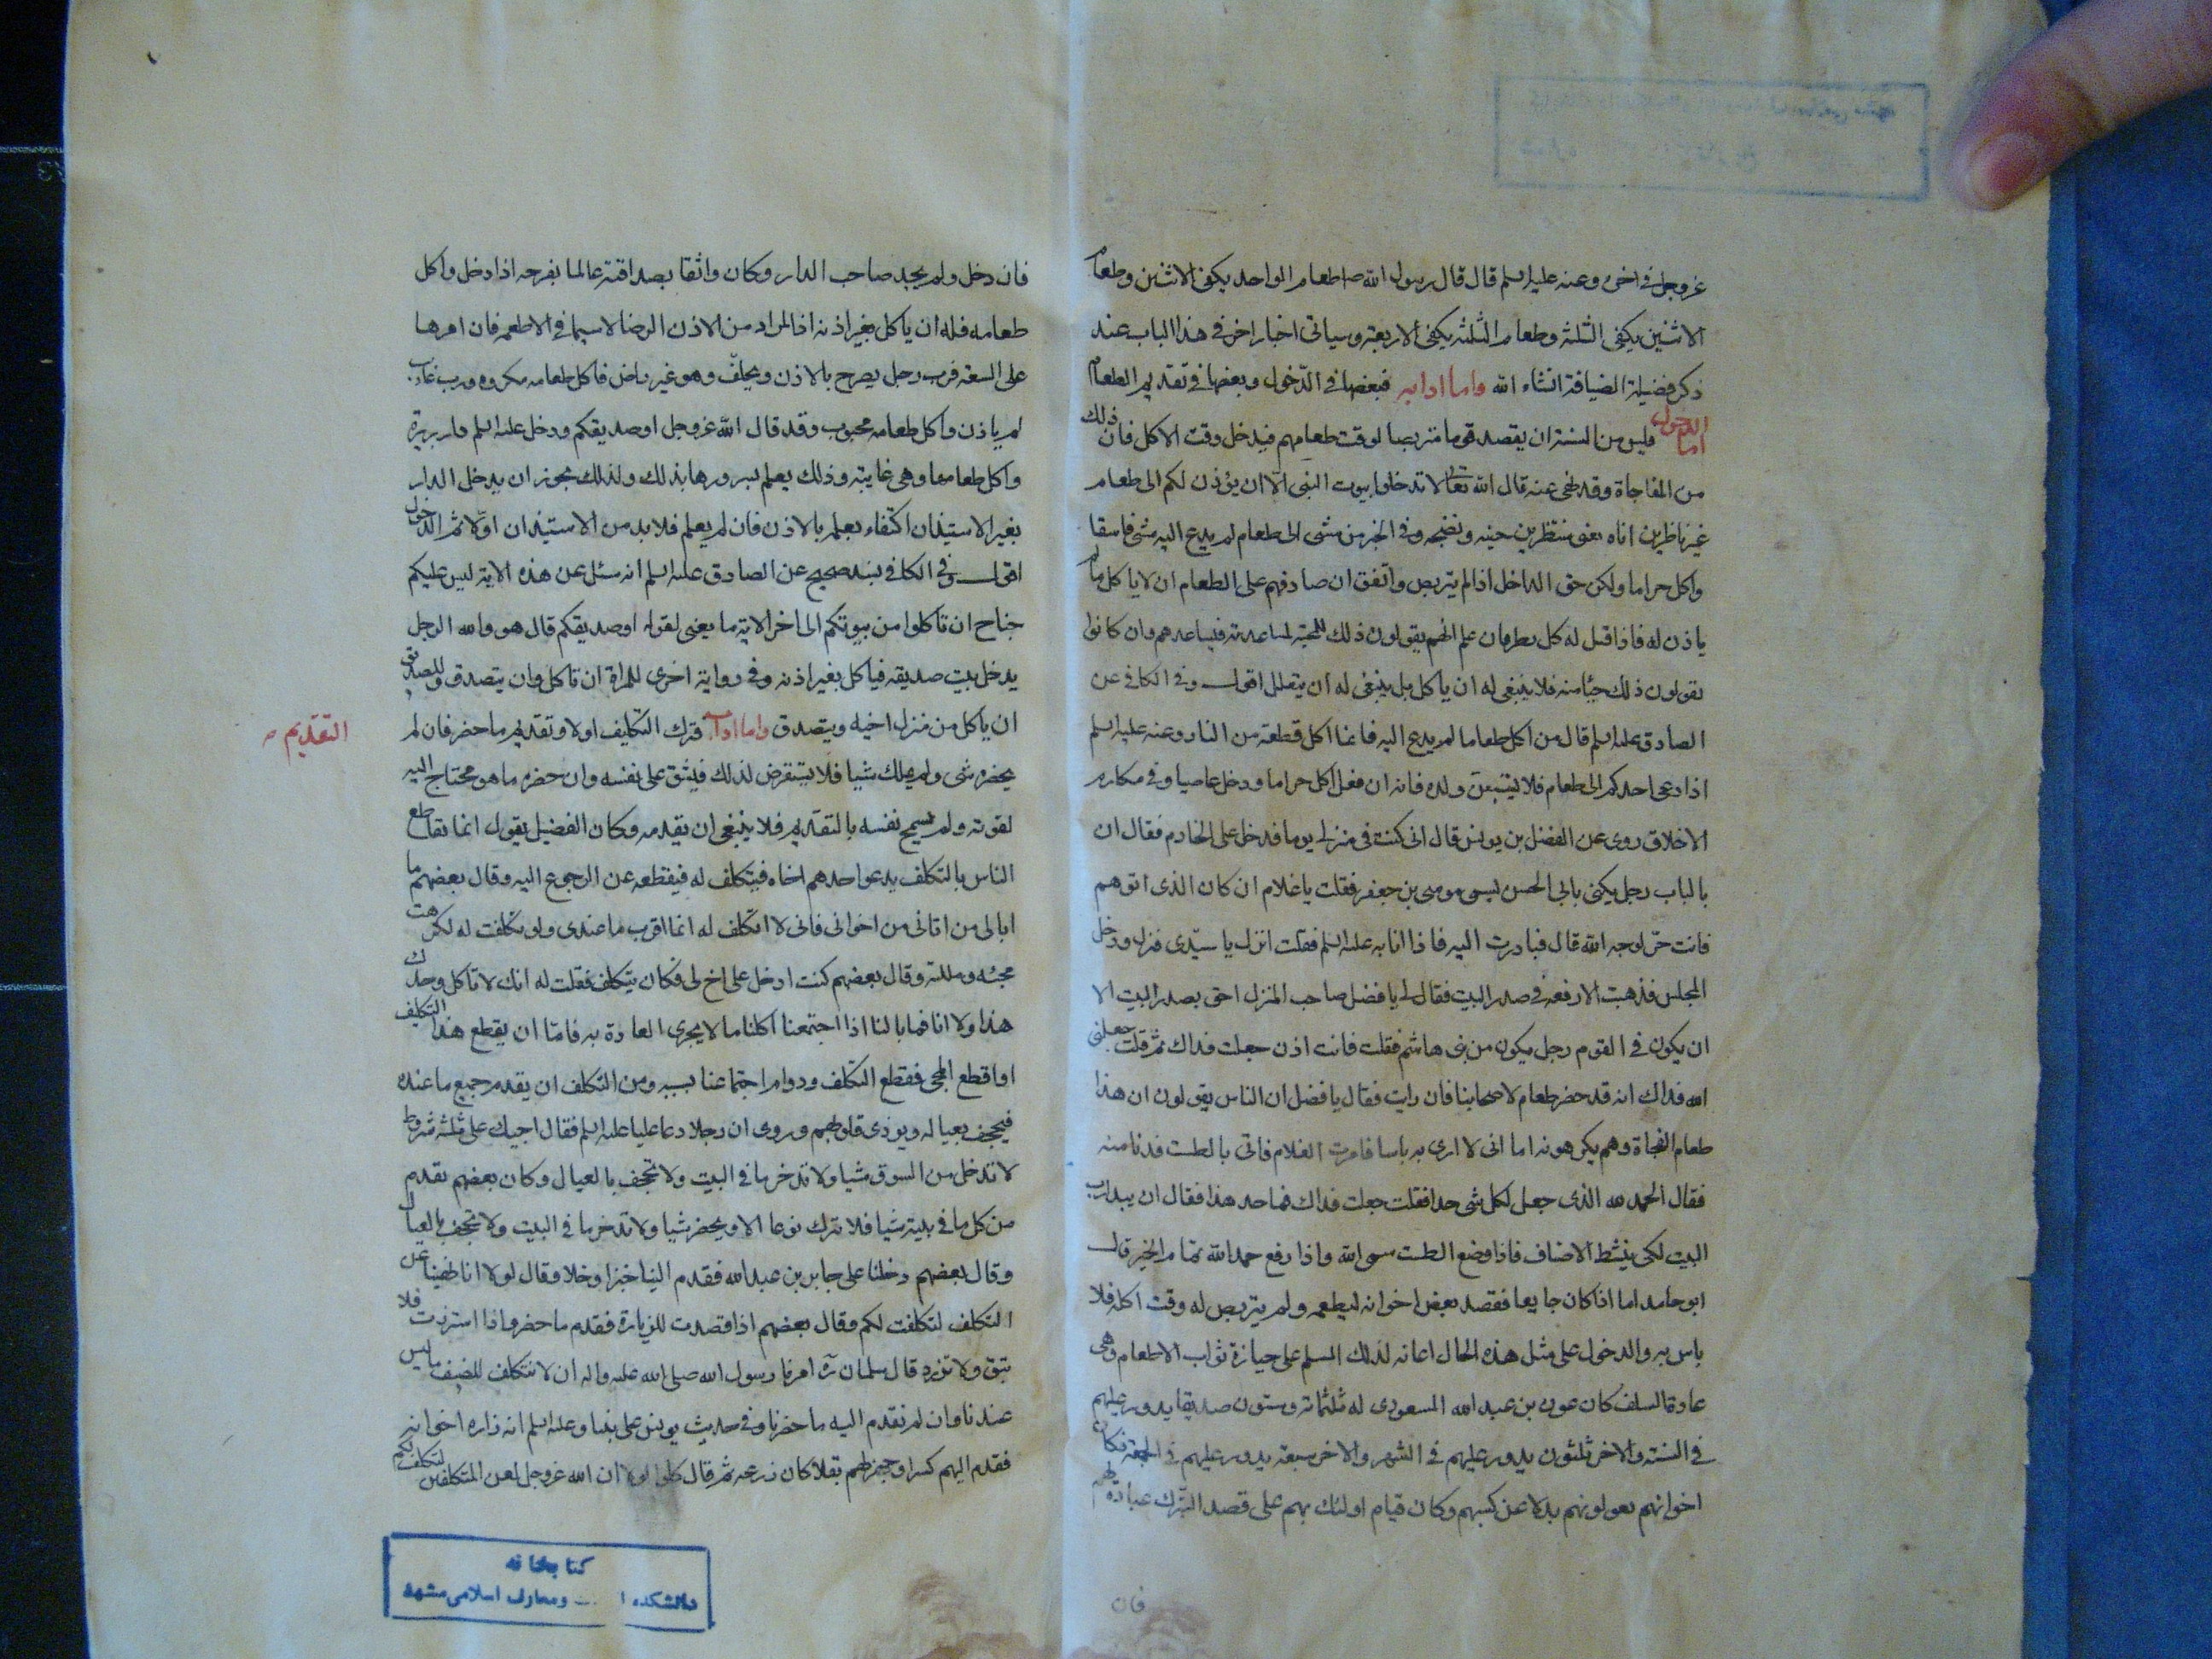 عزوجل في اخرى وعنه عليه السلم قال قال رسول الله ص طعام الواحد يكفي الاثنين وطعام
الاثنين يكفي الثلثه وطعام الثلثه يكفي الاربعة وسياتي اخبار اخر في هذا الباب عند
ذكر فضيلة الضيافة انشاء الله واما ادابه فبعضها في الدخول وبعضها في تقديم الطعام
اما الدخول فليس من السنة ان يقصد قوما متربصا لوقت طعامهم فيدخل وقت الاكل فان ذلك
من المفاجاة وقد نهي عنه قال الله تعالى لا تدخلوا بيوت النبي الا ان يؤذن لكم الى طعام
غير ناظرين اناه يعني منتظرين حينه ونضجه وفي الخبر من مشى الى طعام لم يدع اليه مشى فاسقا
واكل حراما ولكن حق الداخل اذا لم يتربص واتفق ان صادفهم على الطعام ان لا ياكل ما لم
ياذن له فاذا قيل له كل نظر فان علم انهم يقولون ذلك للمحبة لمساعدته فليساعدهم وان كانوا
يقولون ذلك حياء منه فلا ينبغي له ان ياكل بل ينبغي له ان يتعلل اقول وفي الكافي عن
الصادق عليه السلم قال من اكل طعاما لم يدع اليه فانما اكل قطعة من النار وعنه عليه السلم
اذا دعي احدكم الى طعام فلا يتبعن ولده فانه ان فعل اكل حراما ودخل عاصيا وفي مكارم
الاخلاق روى عن الفضل بن يونس قال اني كنت في منزلي يوما فدخل علي الخادم فقال ان
بالباب رجل يكنى بابي الحسن يسمى موسى بن جعفر فقلت يا غلام ان كان الذي اتوهم
فانت حر لوجه الله قال فبادرت اليه فاذا انا به عليه السلم فقلت انزل يا سيدي فنزل ودخل
المجلس فذهبت لارفعه في صدر البيت فقال لي يا فضل صاحب المنزل احق بصدر البيت الا
ان يكون في القوم رجل يكون من بني هاشم فقلت فانت اذن جعلت فداك ثم قلت جعلني
الله فداك انه قد حضر طعام لاصحابنا فان رايت فقال يا فضل ان الناس يقولون ان هذا
طعام الفجاة وهم يكرهونه اما اني لا ارى به باسا فامرت الغلام فاتى بالطست فدنا منه
فقال الحمد لله الذي جعل لكل شي حدا فقلت جعلت فداك فما حد هذا فقال ان يبدا رب
البيت لكي ينشط الاضياف فاذا وضع الطست سمى الله واذا رفع حمد الله تمام الخبر قال
ابو حامد اما اذا كان جايعا فقصد بعض اخوانه ليطعمه ولم يتربص له وقت اكله فلا
باس به والدخول على مثل هذه الحال اعانة لذلك المسلم على حيازة ثواب الاطعام وهي
عادة السلف كان عون بن عبد الله المسعودي له ثلثمائة وستون صديقا يدور عليهم
في السنة والاخر ثلثون يدور عليهم في الشهر والاخر سبعة يدور عليهم في الجمعة فكان
اخوانهم يعولونهم بدلا عن كسبهم وكان قيام اولئك بهم على قصد التبرك عبادة لهم
فان
فان دخل ولم يجد صاحب الدار وكان واثقا بصداقته عالما بفرحه اذا دخل واكل
طعامه فله ان ياكل بغير اذنه اذ المراد من الاذن الرضا لا سيما في الاطعمه فان امرها
على السعة فرب رجل يصرح بالاذن ويحلف وهو غير راض فاكل طعامه مكروه ورب غائب
لم ياذن واكل طعامه محبوب وقد قال الله عزوجل او صديقكم ودخل عليه السلم دار بريرة
واكل طعامها وهي غايبة وذلك يعلم بسرورها بذلك ولذلك يجوز ان يدخل الدار
بغير الاستيذان اكتفاء بعلمه بالاذن فان لم يعلم فلا بد من الاستيذان اولا ثم الدخول
اقول وفي الكافي بسند صحيح عن الصادق عليه السلم انه سئل عن هذه الاية ليس عليكم
جناح ان تاكلوا من بيوتكم الى اخر الاية ما يعني لقوله او صديقكم قال هو والله الرجل
يدخل بيت صديقه فياكل بغير اذنه وفي رواية اخرى للمراة ان تاكل وان يتصدق وللصديق
ان ياكل من منزل اخيه ويتصدق واما اداب فترك التكليف اولا وتقديم ما حضر فان لم
التقديم
يحضره شي ولم يملك شيا فلا يستقرض لذلك فيشق على نفسه وان حضره ما هو محتاج اليه
لقوته ولم تسمح نفسه بالتقديم فلا ينبغي ان يقدمه وكان الفضيل يقول انما تقاطع
الناس بالتكلف يدعو احدهم اخاه فيتكلف له فيقطعه عن الرجوع اليه وقال بعضهم ما
ابالي من اتاني من اخواني فاني لا اتكلف له انما اقرب ما عندي ولو تكلفت له لكرهت
مجيئه ومللته وقال بعضهم كنت ادخل على اخ لي فكان يتكلف فقلت له انك لا تاكل وحدك
هذا ولا انا فما بالنا اذا اجتمعنا اكلنا ما لا يجرى العادة به فاما ان يقطع هذا التكليف
او اقطع المجي فقطع التكلف ودوام اجتماعنا بسببه ومن التكلف ان يقدم جميع ما عنده
فيجحف بعياله ويوذي قلوبهم وروى ان رجلا دعا عليا عليه السلم فقال اجيبك على ثلثه شروط
لا تدخل من السوق شيا ولا تدخر ما في البيت ولا تجحف بالعيال وكان بعضهم يقدم
من كل ما في بيته شيا فلا يترك نوعا الا ويحضر شيا ولا تدخر ما في البيت ولا تجحف بالعيال
وقال بعضهم دخلنا على جابر بن عبد الله فقدم الينا خبزا وخلا وقال لولا انا نهينا عن
التكلف لتكلفت لكم وقال بعضهم اذا قصدت للزيارة فقدم ما حضر واذا استزرت فلا
تبق ولا تذر قال سلمان ره امرنا رسول الله صلى الله عليه واله ان لا نتكلف للضيف ما ليس
عندنا وان لم نقدم اليه ما حضرنا وفي حديث يونس على نبينا وعليه السلم انه زاره اخوانه
فقدم اليهم كسرا وجز لهم بقلا كان زرعه ثم قال كلوا لولا ان الله عزوجل لعن المتكلفين لتكلفت لكم
كتابخانه
دانشكده ... ومعارف اسلامى مشهد